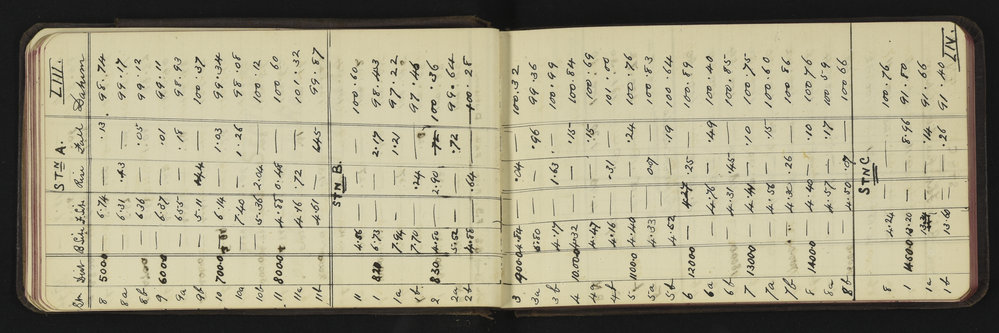 LIII.
STN A.
Stn Dist B.Sh. F.Sh. Rise Fall Datum
8 5000 — 6.74 — .13 98.74
8a — 6.31 .43 — 99.17
8b — 6.36 — .05 99.12
9 6000 — 6.37 — .01 99.11
9a — 6.55 — .18 98.93
9b — 5.11 1.44 — 100.37
10 7000 6.14 — 1.03 99.34
10a — 7.40 — 1.26 98.08
10b — 5.36 2.04 — 100.12
11 8000 — 4.88 0.48 — 100.60
11a — 4.16 .72 — 10.32
11b — 4.61 — 1.45 99.87
STN B.
11 4.86 — — — 100.60
1 820 6.73 — — 2.17 98.43
1a 7.94 — — 1.21 97.22
1b 7.70 — .24 — 97.46
2 830 4.80 — 2.90 .72 100.36
2a 5.52 — — .72 99.64
2b 4.88 — .64 — 100.28
LIV.
3 9000 4.84 — .04 — 100.32
3a 5.80 — — .96 99.36
3b 4.17 — 1.63 — 100.99
4 10.000 4.32 — — .15 100.84
4a 4.47 — — .15 100.69
4b 4.16 — .31 — 101.00
5 11000 4.40 — — .24 100.76
5a 4.33 — .07 — 100.83
5b 4.52 — — .19 100.64
6 12000 — 4.27 .25 — 100.89
6a — 4.76 — .49 100.40
6b — 4.31 .45 — 100.85
7 13000 — 4.41 — .10 100.75
7a — 4.56 — .15 100.60
7b — 4.30 .26 — 100.86
8 14000 — 4.40 — .10 100.76
8a — 4.57 — .17 100.59
8b — 4.50 .07 — 100 66
STN C
8 4.24 — — — 100.76
1 14500 13.20 — — 8.96 91.80
1a — — .14 91.66
1b 13.60 — — .26 91.40